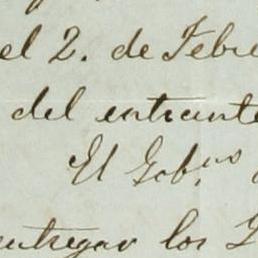 el 2. de Febre
del entrante
El Gob.no
entregar los